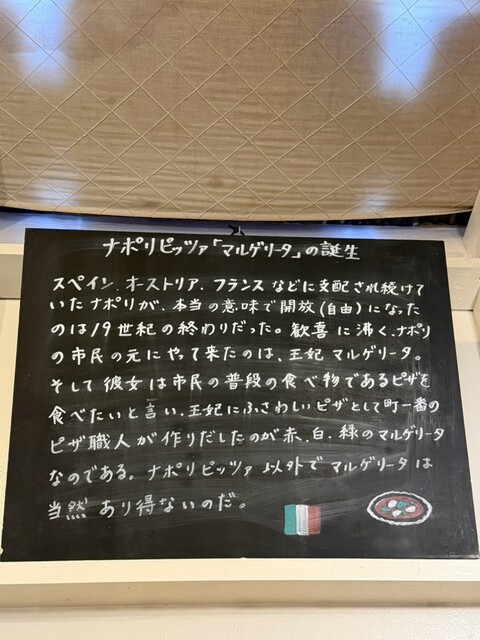 ナポリピッツァ「マルゲリータ」の誕生
スペイン、オーストリア、フランスなどに支配され続けて
いたナポリが、本当の意味で開放(自由)になった
のは19世紀の終わりだった。歓喜に沸く、ナポリ
の市民の元にやって来たのは、王妃マルゲリータ。
そして彼女は市民の普段の食べ物であるピザを
食べたいと言い、王妃にふさわしいピザとして町一番の
ピザ職人が作りだしたのが赤、白、緑のマルゲリータ
なのである。ナポリピッツァ以外でマルゲリータは
当然あり得ないのだ。